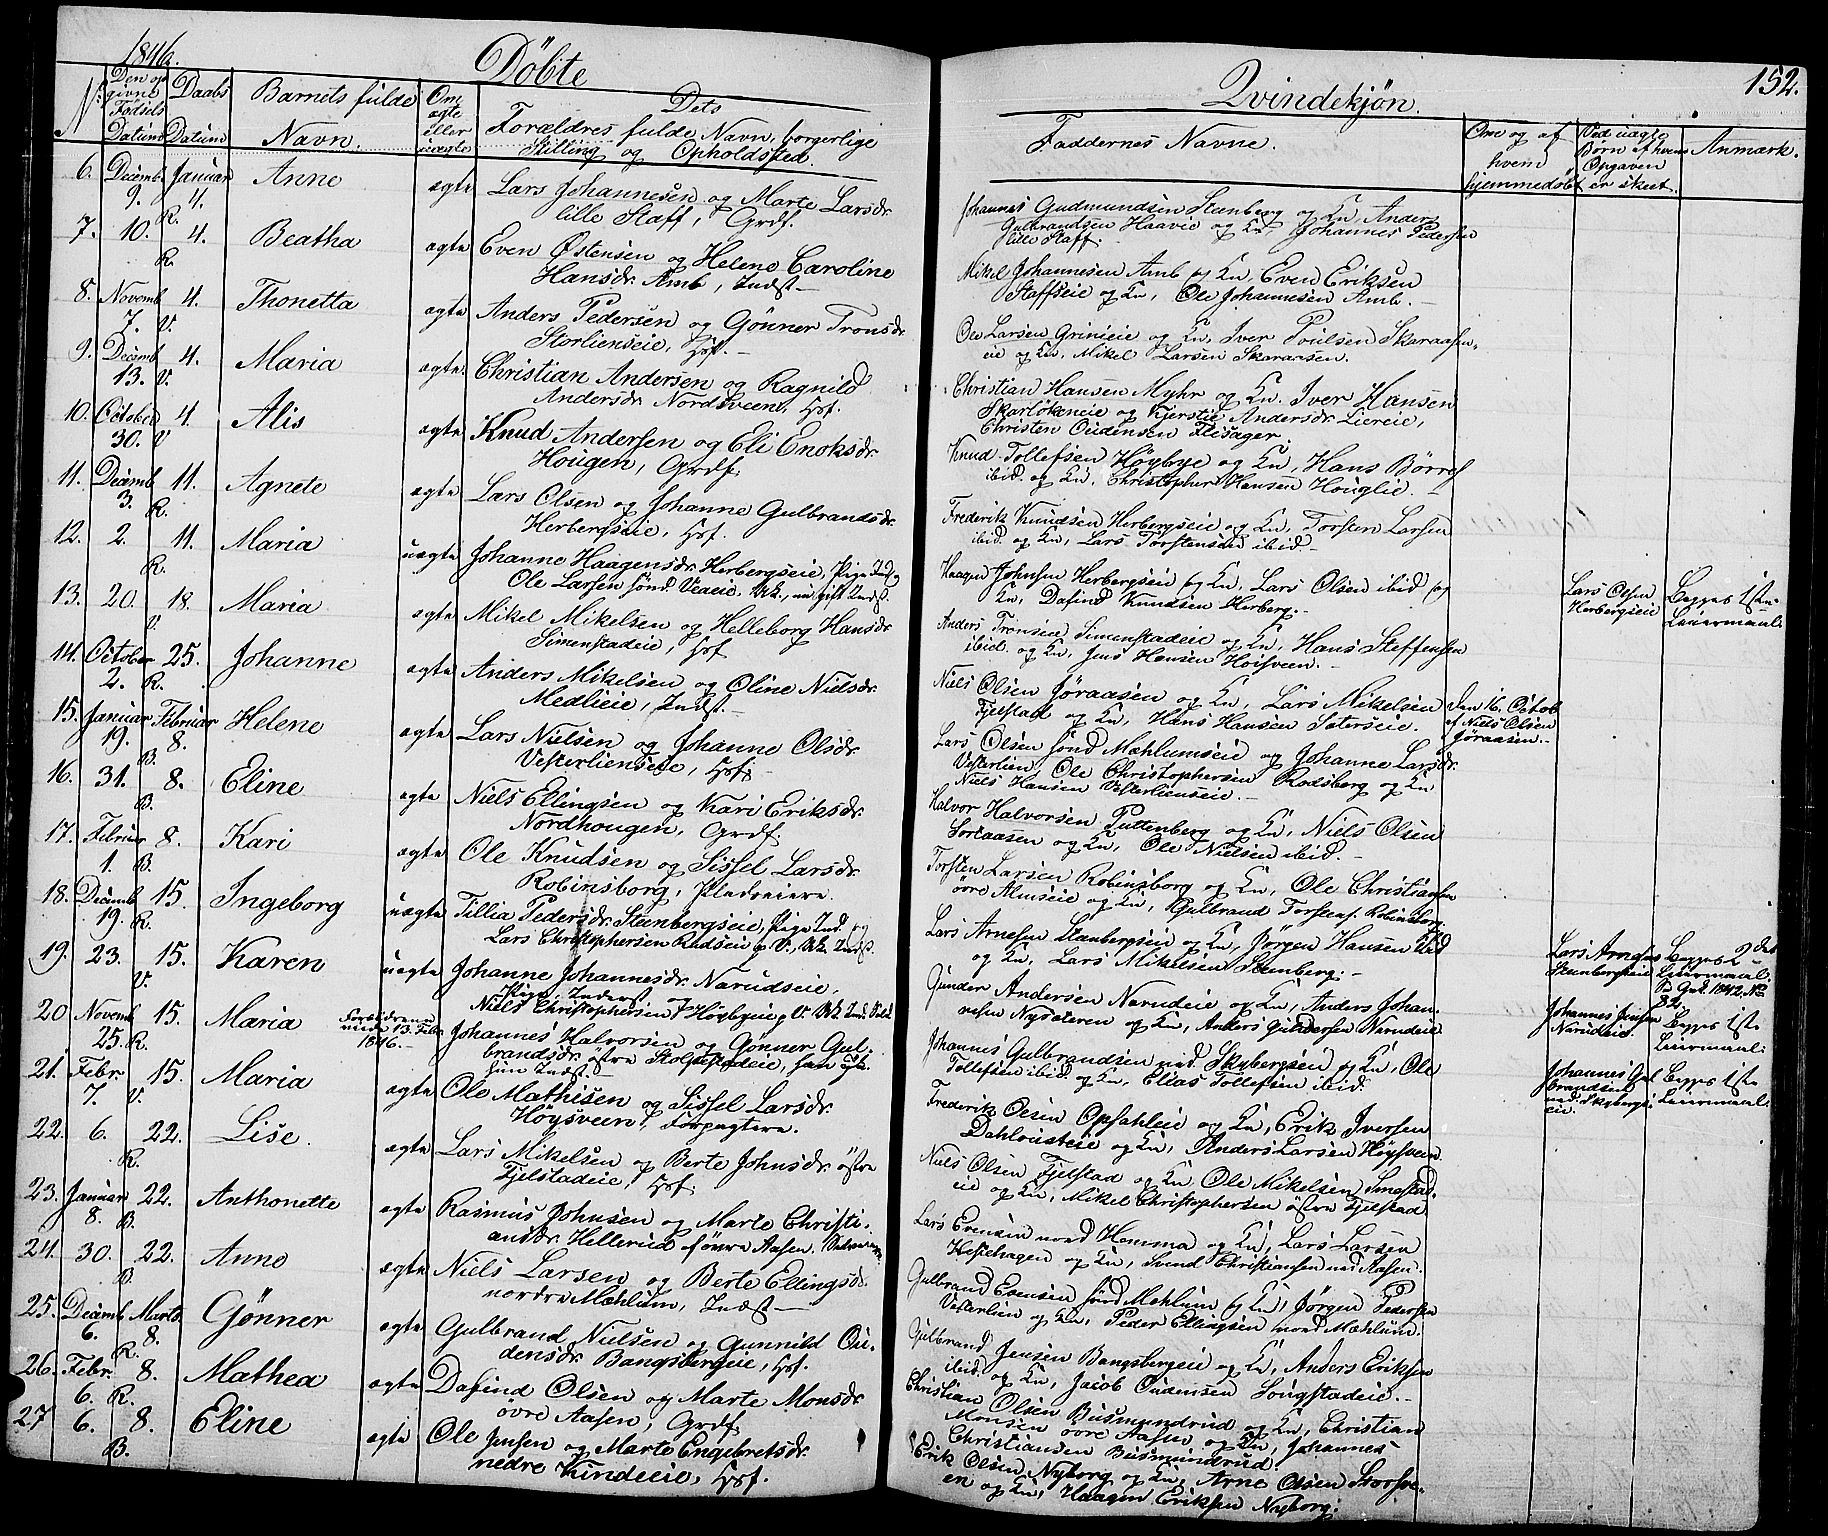 1846.
Döbte
Qvindekjön.
152.
No.
Den opgivne Fødsels Datum
Daabs Datum
Barnets fulde Navn.
Om ægte eller uægte
Dets Forældres fulde Navn, borgerlige Stilling og Opholdsted.
Faddernes Navne.
Om og af hvem hjemmedøbt
Ved uægte Børn af hvem Opgaven er skeet.
Anmærk.
6. Decemb. 9. R. Januar 4. Anne ægte Lars Johannesen og Marte Larsdr.
lille Staff, Grdf.
Johannes Gudmundsen Stenberg og Kn, Anders
Gulbrandsen Haavie og Kn, Johannes Pedersen
lille Staff.
7. 10. R. 4. Beatha ægte Even Østensen og Helene Caroline
Hansdr. Amb, Indst.
Mikel Johannesen Amb og Kn, Even Eriksen
Staffseie og Kn, Ole Johannesen Amb.
8. Novemb 7. V. 4. Thonetta ægte Anders Pedersen og Gönner Tronsdr.
Storlienseie, Hsf.
Ole Larsen Grinieie og Kn, Iver Poulsen Skaraasen-
eie og Kn, Mikel Larsen Skaraasen.
9. Decemb 13. V. 4. Maria ægte Christian Andersen og Ragnild
Andersdr. Nordsveen, Hsf.
Christian Hansen Myhr og Kn. Iver Hansen
Skarlökeneie og Kjerstie Andersdr. Liereie,
Christen Oudensen Flisager.
10. October 30. V. 4. Alis ægte Knud Andersen og Eli Enoksdr.
Hougen, Grdf.
Knud Tollefsen Höybye og Kn, Hans Börres
ibid. og Kn, Christopher Hansen Houglie.
11. Decemb 3. R. 11. Agnete ægte Lars Olsen og Johanne Gulbrandsdr.
Herbergseie, Hsf.
Frederik Knudsen Herbergseie og Kn, Torsten Larsen
ibid. og Kn, Lars Torstensen ibid.
12. 2. R. 11. Maria uægte Johanne Haagensdr. Herbergseie, Pige Ind. og
Ole Larsen sönd. Veaeie, Uk., nu gift Indst.
Haagen Johnsen Herbergseie og Kn, Lars Olsen ibid og
Kn, Dafind Knudsen Herberg.
Lars Olsen
Herbergseie
Begges 1ste
Leiermaal.
13. 20. V. 18. Maria ægte Mikel Mikelsen og Helleborg Hansdr.
Simenstadeie, Hsf.
Anders Tronsen Simenstadeie og Kn, Hans Steffensen
ibid. og Kn, Jens Hansen Höisveen.
14. October 2. R. 25. Johanne ægte Anders Mikelsen og Oline Nielsdr.
Medlieie, Indst.
Niels Olsen Jöraasen og Kn, Lars Mikelsen
Fjelstad og Kn, Hans Hansen Sæterseie.
Den 16 Octob
af Niels Olsen
Jöraasen.
15. Januar 19. B. Februar 8. Helene ægte Lars Nielsen og Johanne Olsdr.
Vesterlienseie, Hsf.
Lars Olsen sönd Mæhlumseie og Johanne Larsdr.
Vesterlien, Ole Christophersen Rodsberg og Kn
Niels Hansen Vesterlienseie.
16. 31. B. 8. Eline ægte Niels Ellingsen og Kari Eriksdr.
Nordhougen, Grdf.
Halvor Halvorsen Puttenberg og Kn, Niels Olsen
Joraasen og Kn, Ole Nielsen ibid.
17. Februar 1. B. 8. Kari ægte Ole Knudsen og Sissel Larsdr.
Robinsborg, Pladseiere.
Torsten Larsen Robinsborg og Kn, Ole Christiansen
övre Almseie og Kn, Gulbrand Torstens. Robinsborg.
18. Decemb 19. R. 15. Ingeborg uægte Tillia Pedersdr. Stenbergseie, Pige Ind. og
Lars Christophersen Rudseie p. V., Uk. Indst.
Lars Arnesen Stenbergseie og Kn, Jörgen Hansen ibid
og Kn, Lars Mikelsen Stenberg.
Lars Arnesen
Stenbergseie
Begges 2det
Leiermaal.
Pd Grdf. 1842, No
82.
19. 23. V. 15. Karen uægte Johanne Johannesdr. Narudseie,
Pige Inderst og
Niels Christophersen Höybyeie p. V. Uk. Ind.
Gunder Andersen Narudeie og Kn, Anders Johan-
nesen Nysæteren og Kn, Anders Gundersen Narudeie
Johannes Jensen
Narudeie.
Begges 1ste
Leiermaal.
20 Novemb 25. R. 15. Maria Forældrene
viede 13. Febr.
1846. Johannes Halvorsen og Gönner Gul-
brandsdr. östre Stolpestadeie, han Uk.
hun Indst.
Johannes Gulbrandsen ned. Skybergseie og Kn, Ole
Tollefsen ibid og Kn, Elias Tollefsen ibid.
Johannes Gul
brandsen
ned. Skybergs-
eie.
Begges 1ste
Leiermaal.
21. Febr. 7. V. 15. Maria ægte Ole Mathisen og Sissel Larsdr.
Höysveen, Forpagtere.
Frederik Olsen Opsahleie og Kn, Erik Iversen
Dahlousteie og Kn, Anders Larsen Höysveen
22. 6. R. 22. Lise. ægte Lars Mikelsen og Berte Johnsdr. östre
Fjelstadeie, Hsf.
Niels Olsen Fjelstad og Kn, Ole Mikelsen Smestad-
eie og Kn, Mikel Christophersen östre Fjelstad
23. Januar 8. B. 22. Anthonette ægte Rasmus Johnsen og Marte Christi-
ansdr. Hellerud af övre Aasen,
Lars Evensen nord Hemma og Kn, Lars Larsen
Hestehagen og Kn, Svend Christiansen ned Aasen.
24. 30. B. 22. Anne ægte Niels Larsen og Berte Ellingsdr.
nordre Mæhlum, Indst.
Gulbrand Evensen sönd Mæhlum og Kn, Jörgen Pedersen
Vesterlien og Kn, Peder Ellingsen nord Mæhlum.
25. Decemb 6. R. Marts 8. Gönner ægte Gulbrand Nielsen og Gunnild Ou-
densdr. Bangsbergeie, Hsf.
Gulbrand Jensen Bangsbergeie og Kn, Anders Eriksen
ibid. og Kn, Jacob Oudensen Lougstadeie.
26. Febr. 6. R. 8. Mathea ægte Dafind Olsen og Marte Monsdr.
övre Aasen, Grdf.
Christian Olsen Busmundrud og Kn, Christian
Monsen övre Aasen og Kn, Johannes
Christiansen Busmundrud.
27 6. B. 8. Eline ægte Ole Jensen og Marte Engebretsdr.
nedre Kindeeie, Hsf.
Erik Olsen Nyborg og Kn, Arne Olsen Storsve-
en og Kn, Haagen Eriksen Nyborg.